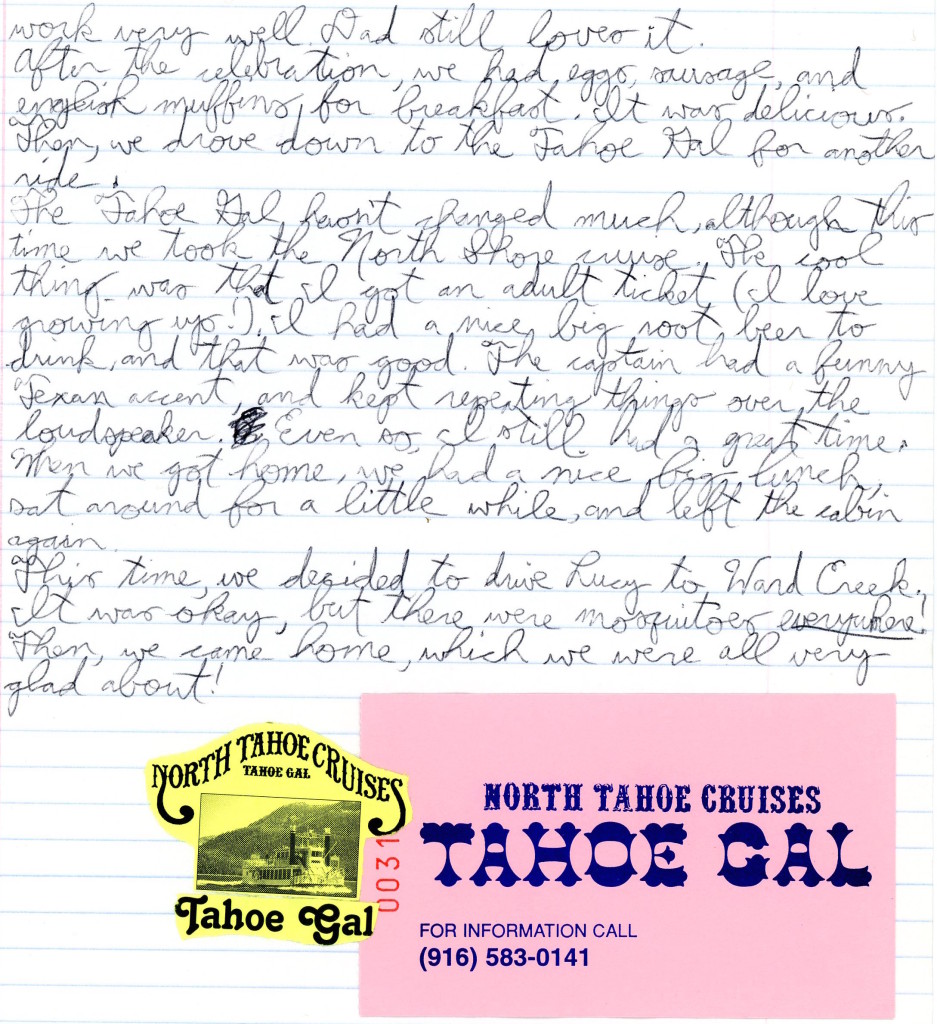 work very well. Dad still loves it.
After the celebration, we had eggs, sausage, and
english muffins for breakfast. It was delicious.
Then, we drove down to the Tahoe Gal for another
ride.
The Tahoe Gal hasn't changed much, although this
time we took the North Shore cruise. The cool
thing was that I got an adult ticket (I love
growing up!). I had a nice, big root beer to
drink, and that was good. The captain had a funny
Texan accent, and kept repeating things over the
loudspeaker. Even so, I still had a great time.
When we got home, we had a nice big lunch,
sat around for a little while, and left the cabin
again.
This time, we decided to drive Lucy to Ward Creek.
It was okay, but there were mosquitoes everywhere!
Then, we came home, which we were all very
glad about!
NORTH TAHOE CRUISES
TAHOE GAL
Tahoe Gal
0031
NORTH TAHOE CRUISES
TAHOE GAL
FOR INFORMATION CALL
(916) 583-0141